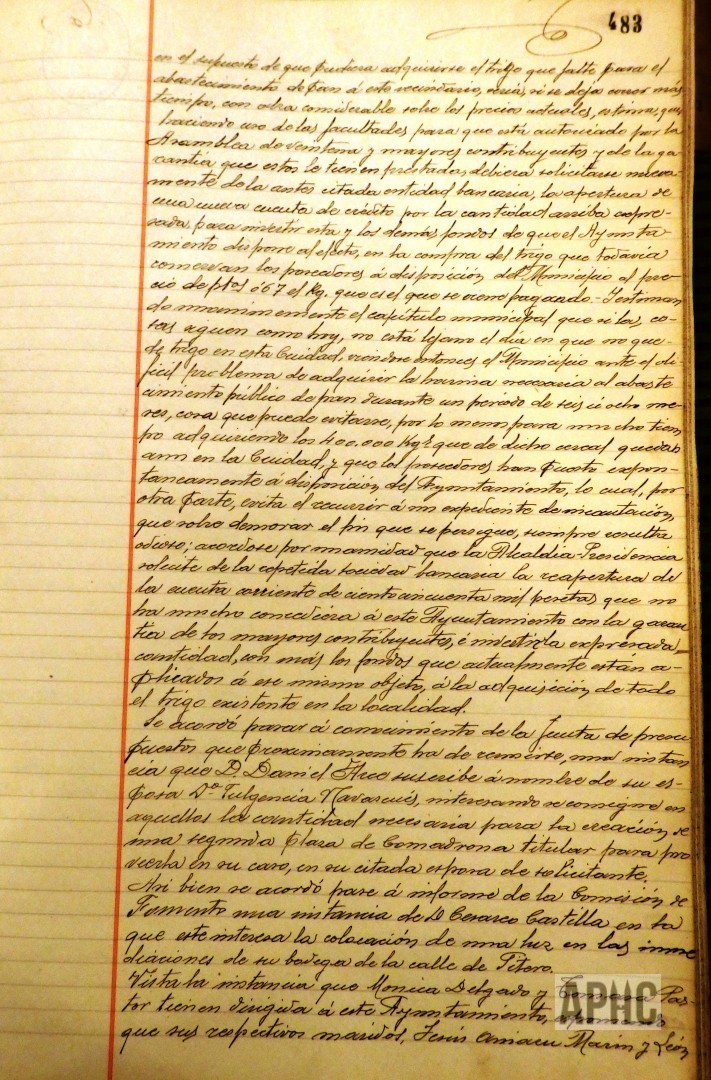 483
en el supuesto de que pudiera adquirirse el trigo que falte para el
abastecimiento de pan á este vecindario, seria, si se deja correr más
tiempo, con sobra considerable sobre los precios actuales, estima, que
haciendo uso de las facultades para que está autorizado por la
Asamblea de veintena y mayores contribuyentes y de la ga-
rantia que estos le tienen prestada, debiera solicitarse nueva-
mente de la antes citada entidad bancaria, la apertura de
una nueva cuenta de crédito por la cantidad arriba expre-
sada, para invertir esta y los demás fondos de que el Ayunta-
miento dispone al efecto, en la compra del trigo que todavia
conservan los poseedores á disposición del Municipio al pre-
cio de ptas 0'67 el Kg. que es el que se viene pagando.-
do el capitulo municipal que si las co-
sas siguen como hoy, no está lejano el dia en que no que-
de trigo en esta Ciudad, viendose entonces el Municipio ante el di-
ficil problema de adquirir la harina necesaria al abaste-
cimiento público de pan durante un periodo de seis ú ocho me-
ses, cosa que puede evitarse, por lo menos para mucho tiem-
po adquiriendo los 400.000 Kgs que de dicho cereal quedan
aun en la Ciudad, y que los poseedores han puesto expon-
taneamente á disposición del Ayuntamiento, lo cual, por
otra parte, evita el recurrir á un expediente de incautación,
que sobre demorar el fin que se persigue, siempre resulta
odioso; acordose por unanimidad que la Alcaldia-Presidencia
solicite de la repetida sociedad bancaria la reapertura de
la cuenta corriente de ciento cincuenta mil pesetas que no
ha mucho concediera á este Ayuntamiento con la garan-
tia de los mayores contribuyentes, é invertir la expresada
cantidad, con más los fondos que actualmente están a-
plicados á ese mismo objeto, á la adquisición de todo
el trigo existente en la localidad.
Se acordó pasar á conocimiento de la Junta de presu-
puestos que proximamente ha de reunirse, una instan-
cia que D. Daniel suscribe á nombre de su es-
posa Dª Fulgencia Navascués, interesando se consigne en
aquellos la cantidad necesaria para la creación de
una segunda plaza de Comadrona titular para pro-
veerla en su caso, en su citada esposa de solicitante.
Asi bien se acordó pase á informe de la Comisión de
Fomento una instancia de D. Cesareo Castilla en la
que este interesa la colocación de una luz en las inme-
diaciones de su bodega de la calle de Fitero.
Vista la instancia que Monica Delgado y Pas-
tor tienen dirigida á este Ayuntamiento,
que sus respectivos maridos, Jesús Marin y León
APHC